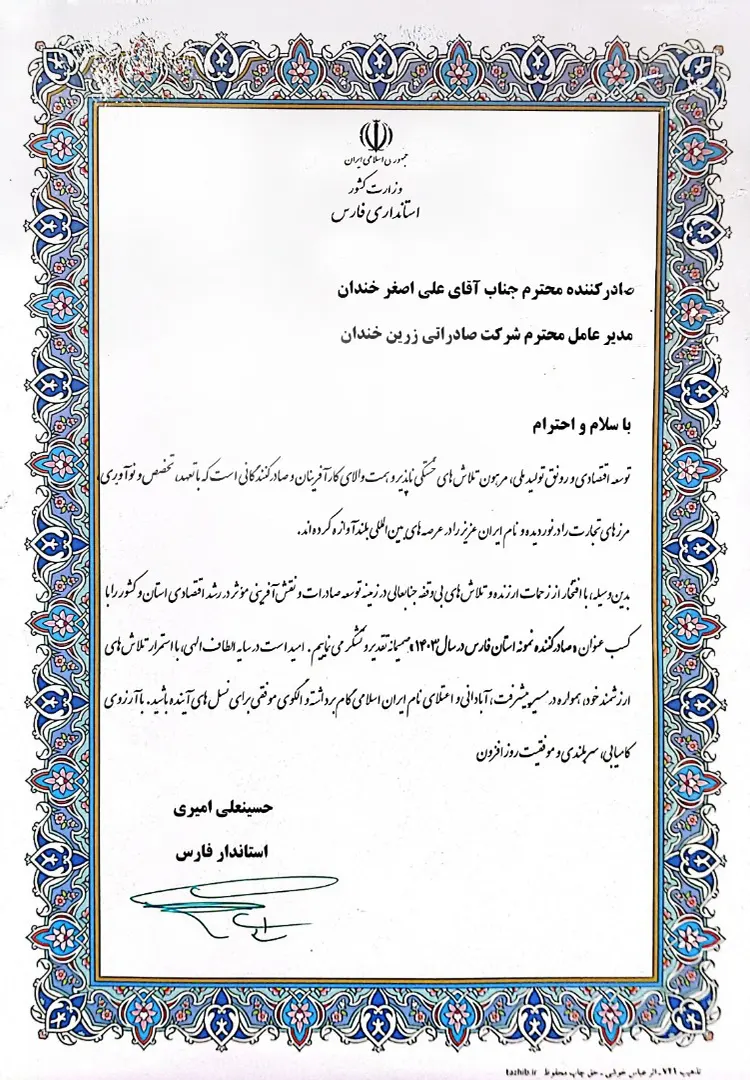 جمهوری اسلامی ایران
وزارت کشور
استانداری فارس
صادر کننده محترم جناب آقای علی اصغر خندان
مدیر عامل محترم شرکت صادراتی زرین خندان
با سلام و احترام
توسعه اقتصادی و رونق تولید ملی، مرهون تلاش‌های خستگی ناپذیر و همت والای کارآفرینان و صادرکنندگانی است که با تعهد، تخصص و نوآوری،
مرزهای تجارت را در نوردیده و نام ایران عزیز را در عرصه‌های بین المللی بلند آوازه کرده‌اند.
بدین وسیله، با افتخار از زحمات ارزنده و تلاش‌های بی وقفه جنابعالی در زمینه توسعه صادرات و نقش آفرینی مؤثر در رشد اقتصادی استان و کشور را با
کسب عنوان «صادرکننده نمونه استان فارس در سال ۱۴۰۳» صمیمانه تقدیر و تشکر می نماییم. امید است در سایه الطاف الهی، با استمرار تلاش‌های
ارزشمند خود، همواره در مسیر پیشرفت، آبادانی و اعتلای نام ایران اسلامی گام برداشته و الگوی موفقی برای نسل‌های آینده باشید. با آرزوی
کامیابی، سربلندی و موفقیت روز افزون
حسینعلی امیری
استاندار فارس
تذهیب ۷۲۱ ـ اثر عباس خوشی ـ حق چاپ محفوظ tazhib.ir